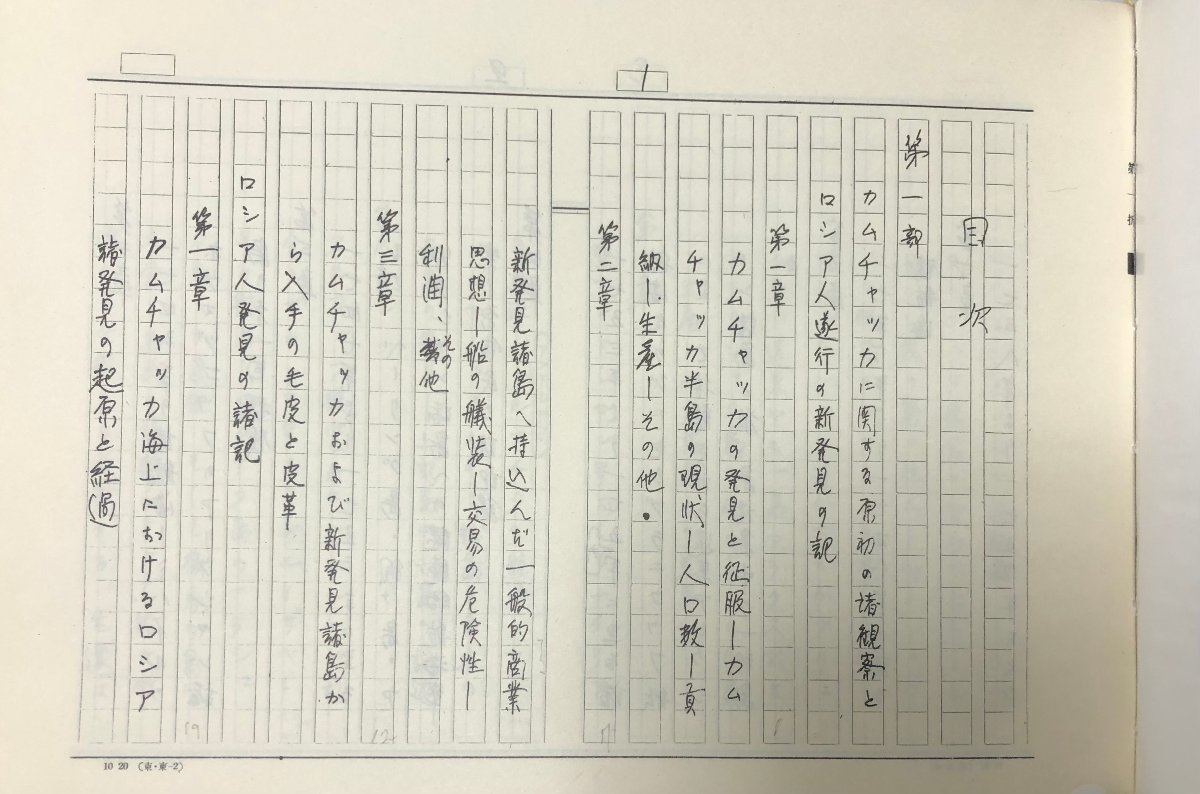 1
目次
第一部
カムチャッカに関する原初の諸観察と
ロシア人遂行の新発見の記
第一章
カムチャッカの発見と征服ーカム
チャッカ半島の現状ー人口数ー貢
納ー生産ーその他・
第二章
新発見諸島へ持込んだ一般的商業
思想ー船の艤装ー交易の危険性ー
利潤、その他
第三章
カムチャッカおよび新発見諸島か
ら入手の毛皮と皮革
ロシア人発見の諸記
第一章
カムチャッカ海上におけるロシア
諸発見の起原と経過
1
7
12
19
10 20 (東・東-2)